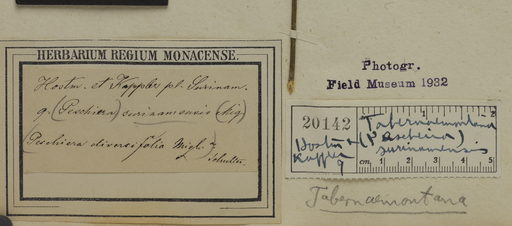 HERBARIUM REGIUM MONACENSE.
Hostm. et Kappler pl. Surinam.
9. (Peschiera) surinamensis (Miq)
(Peschiera diversifolia Miql.)
Schultes
Photogr.
Field Museum 1932
20142
Tabernaemontana
(Peschiera)
surinamensis
Hostm +
Kappler
9
cm. 1 2 3 4 5
Tabernaemontana